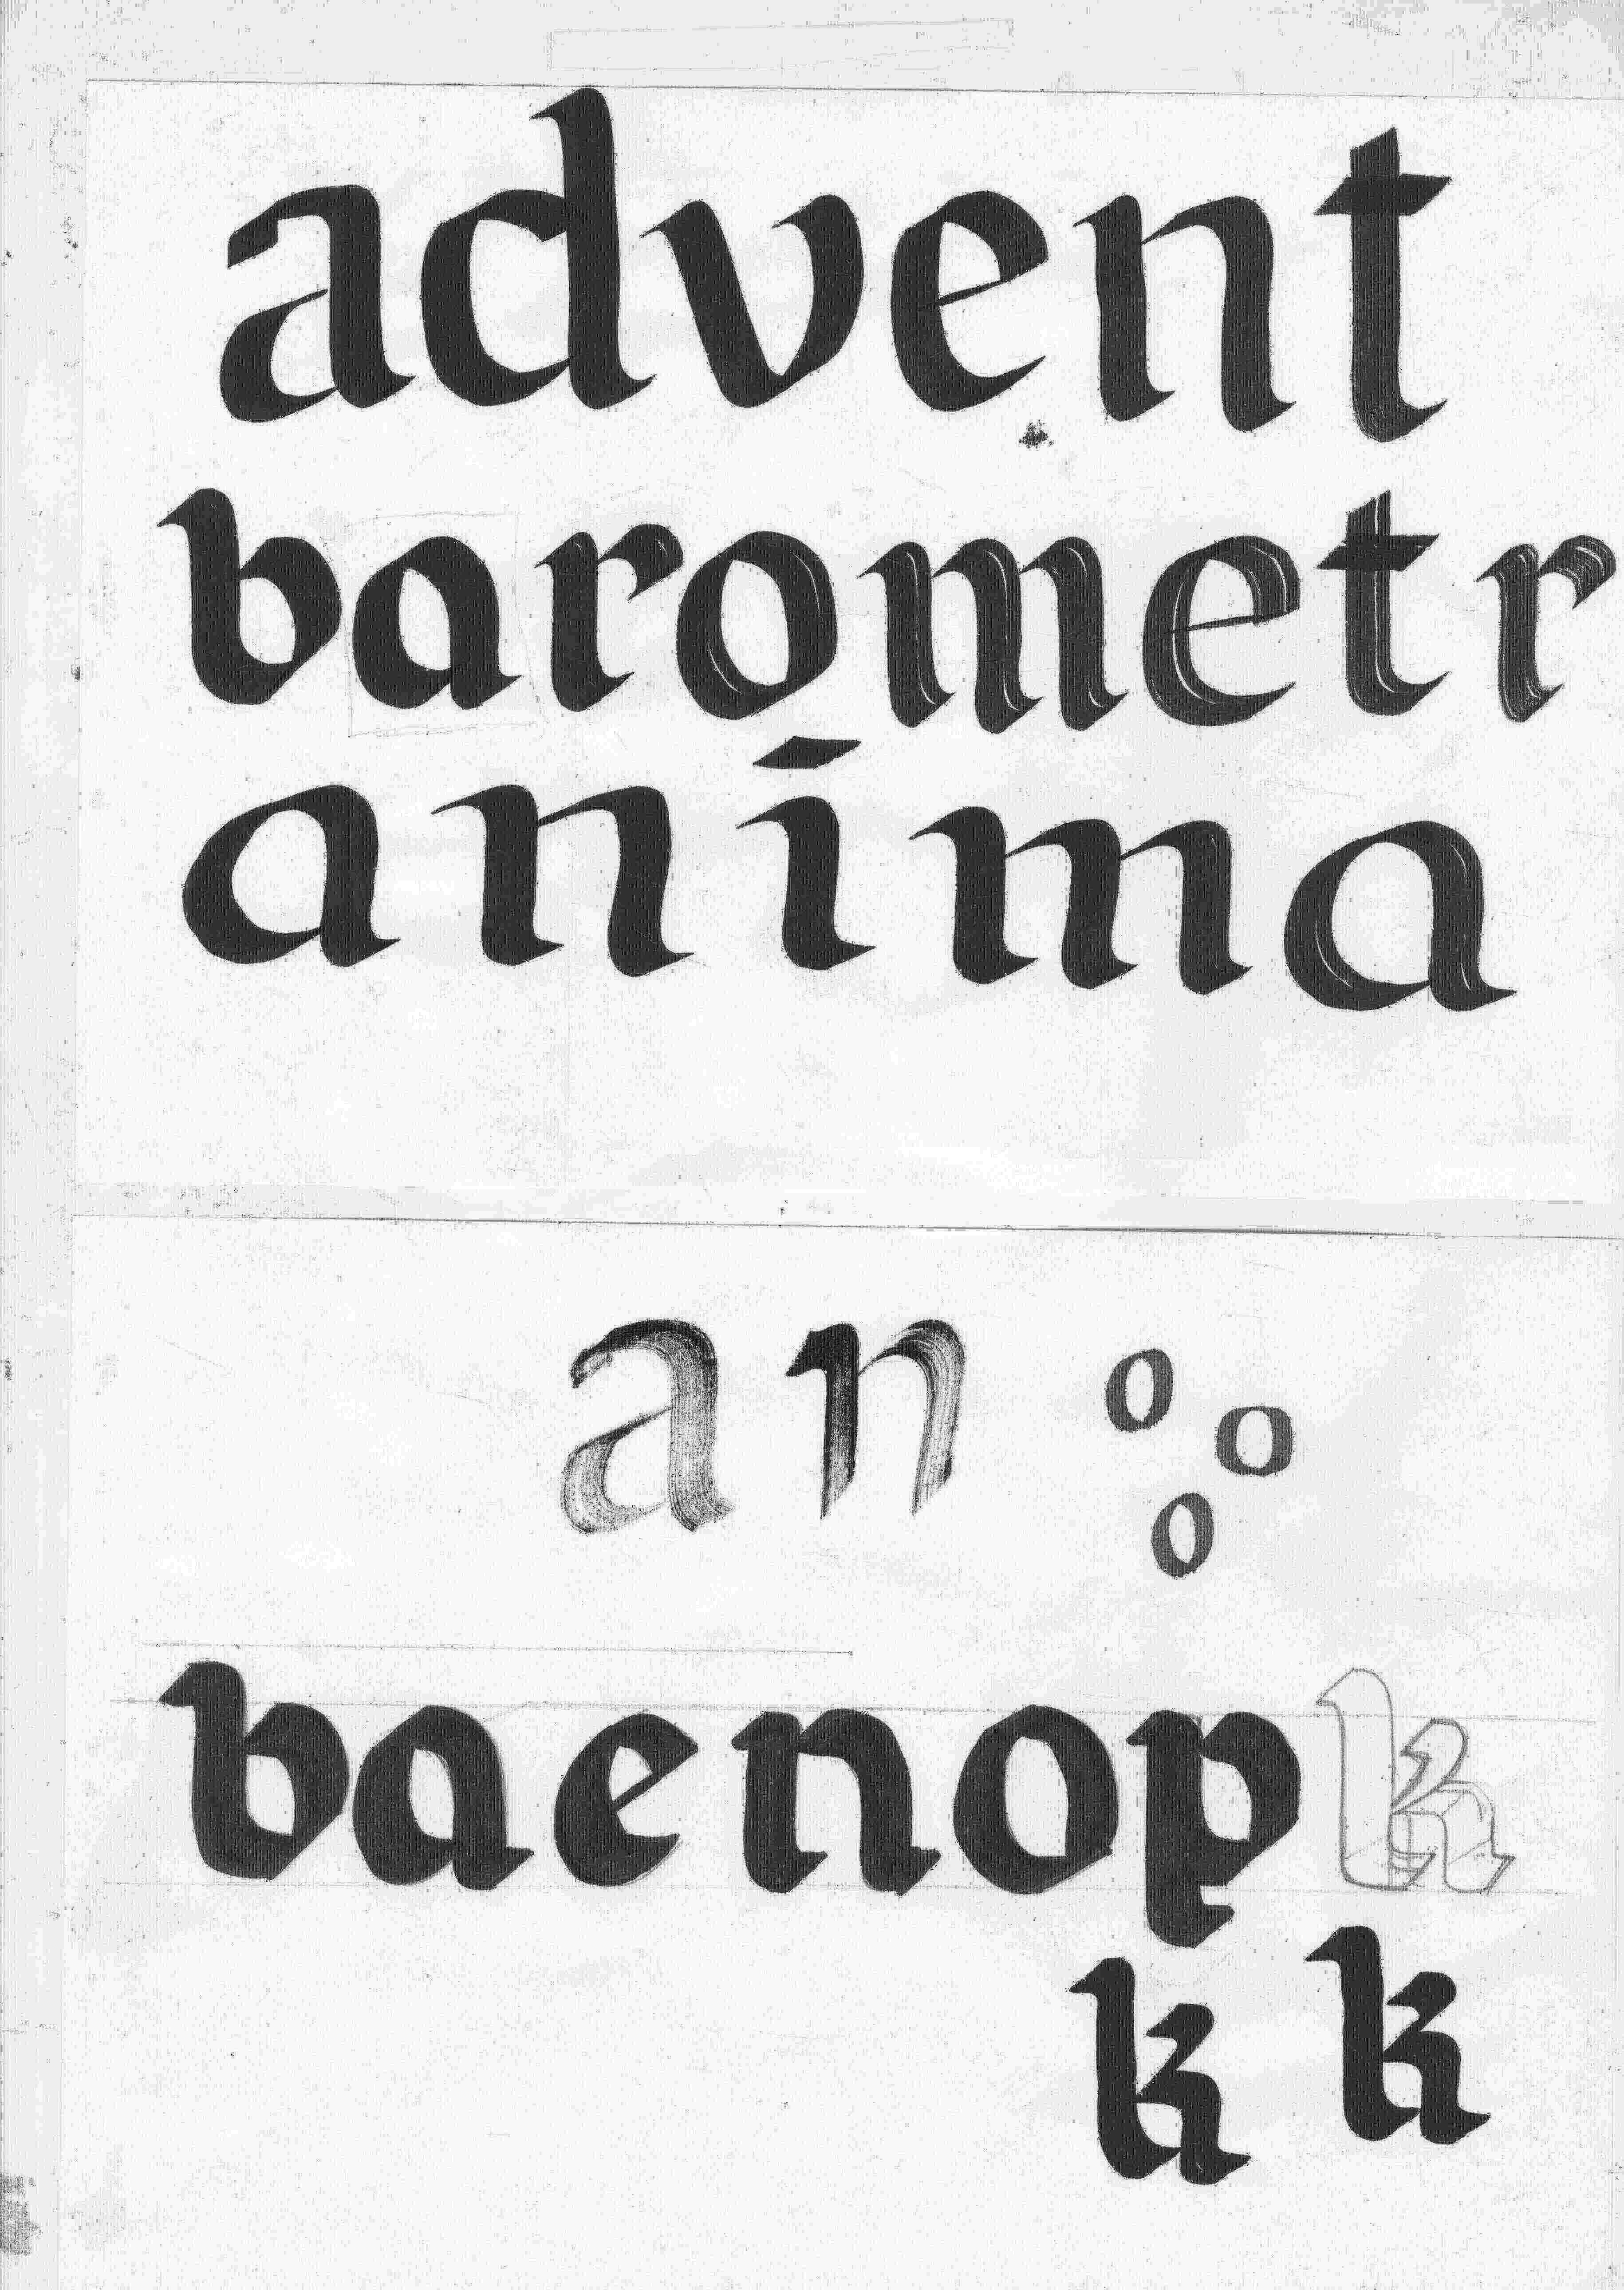 advent
barometr
anima
an ooo
baenopk
kk